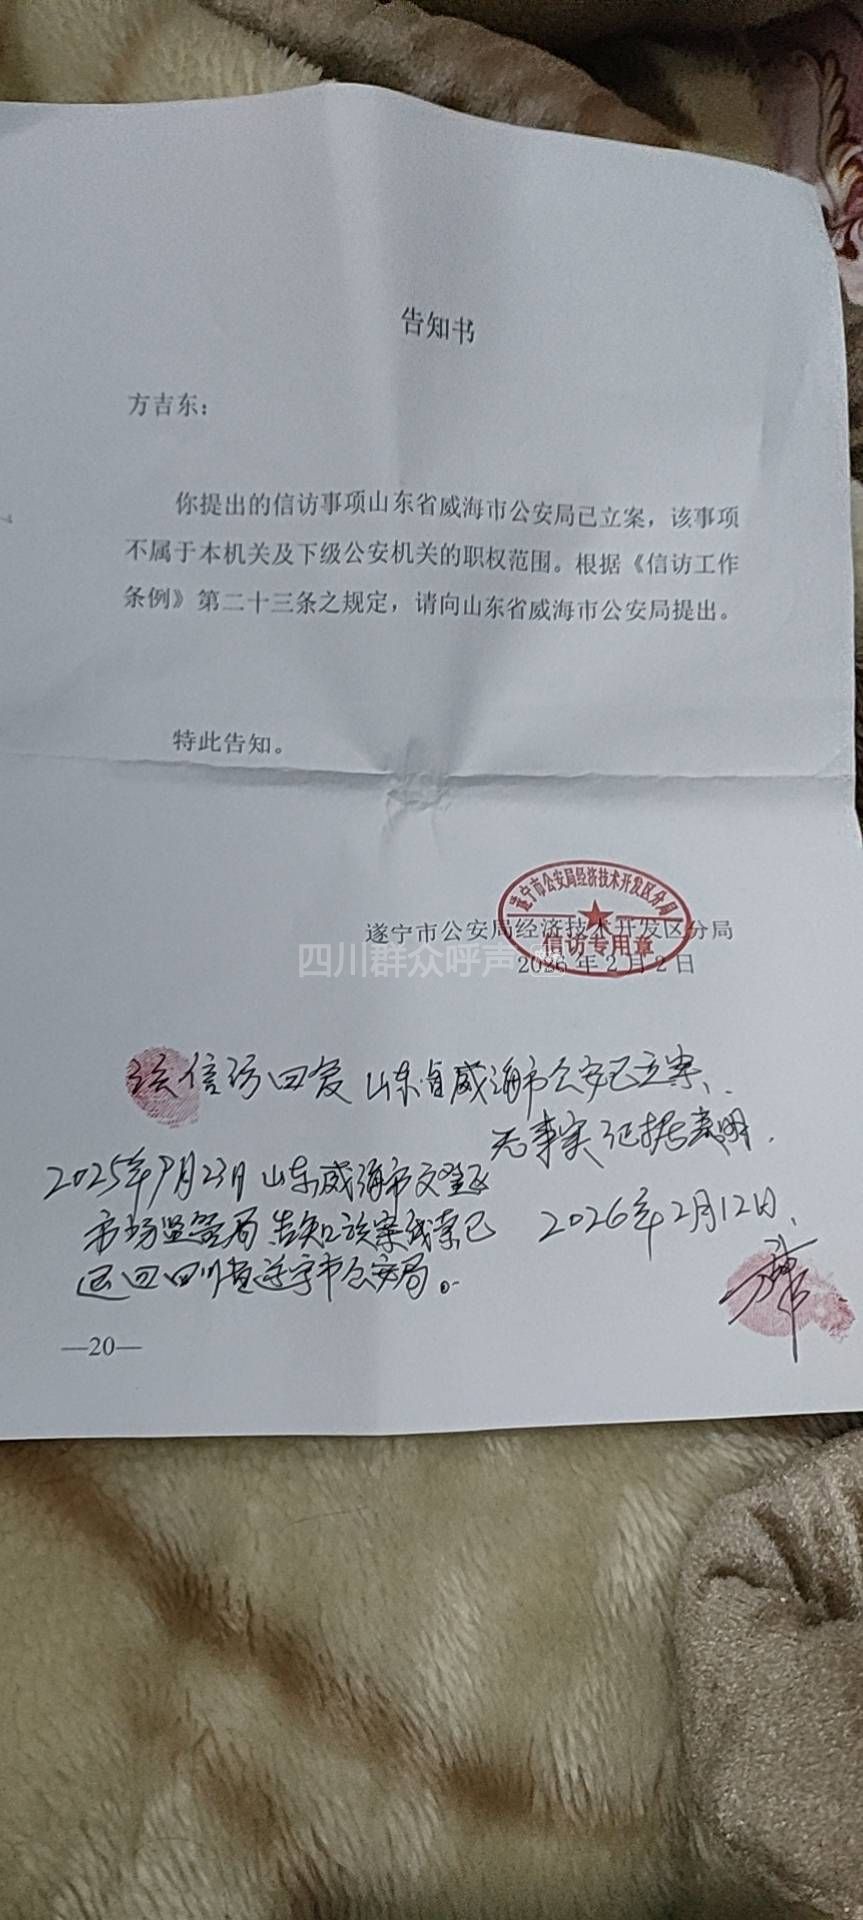 告知书
方吉东：
你提出的信访事项山东省威海市公安局已立案，该事项
不属于本机关及下级公安机关的职权范围。根据《信访工作
条例》第二十三条之规定，请向山东省威海市公安局提出。
特此告知。
遂宁市公安局经济技术开发区分局
信访专用章
遂宁市公安局经济技术开发区分局
四川群众呼声
2026年2月2日
该信访回复山东省威海市公安已立案、
无事实证据表明．
2025年9月23日山东威海市文登区
市场监管局告知该案线索已
迟回四川省遂宁市公安局。
2026年2月12日．
—20—